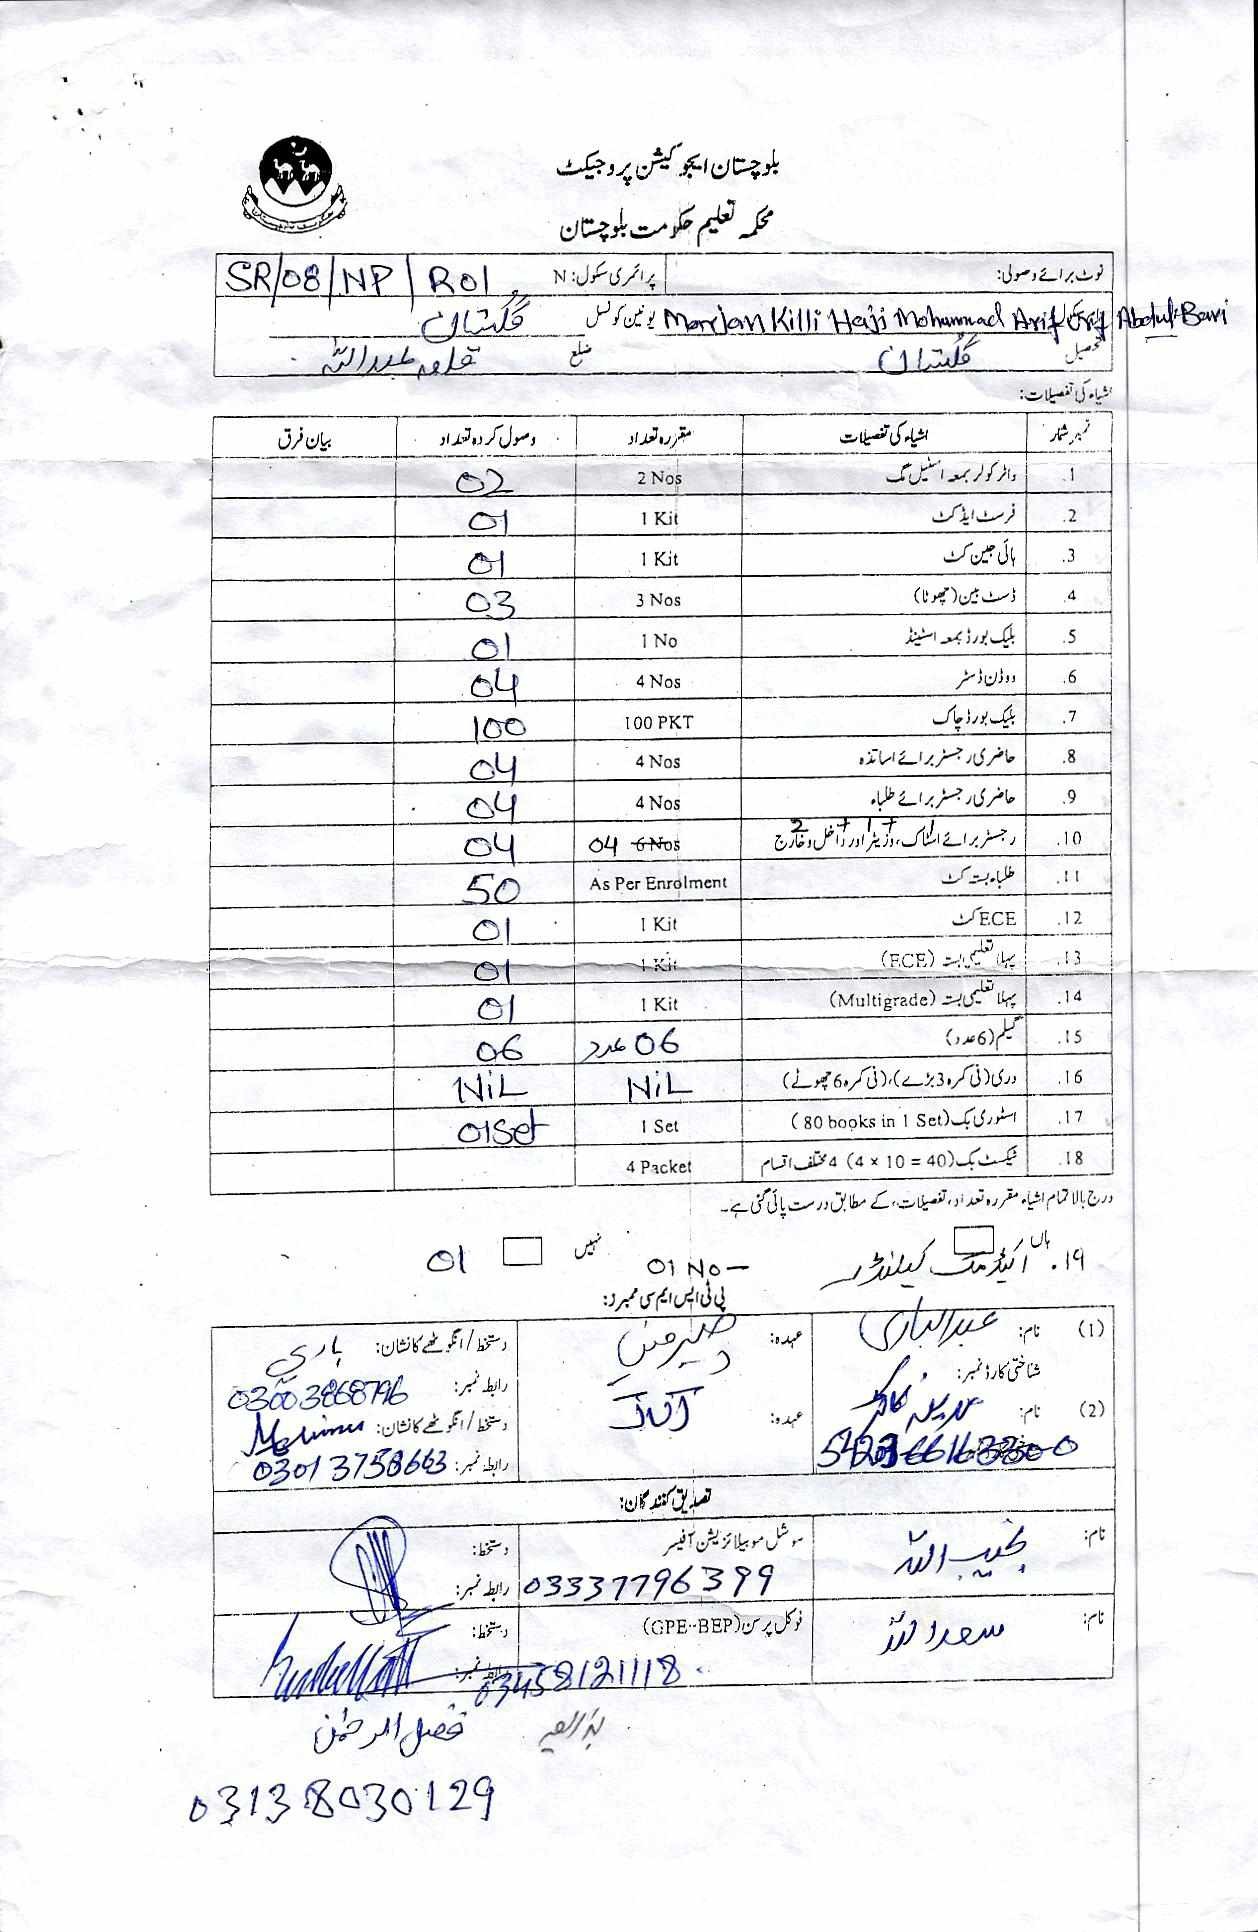 بلوچستان ایجوکیشن پروجیکٹ
محکمہ تعلیم حکومت بلوچستان
نوٹ برائے وصولی: پرائمری سکول: N SR/08/NP/R01
Marjan Killi Haji Mohammad Arif Urf Abdul Bari یونین کونسل گلستان
تحصیل گلستان ضلع قلعہ عبداللہ
اشیاء کی تفصیلات:
نمبر شمار اشیاء کی تفصیلات مقررہ تعداد وصول کردہ تعداد بیان فرق
1. واٹر کولر بمعہ اسٹیل مگ 2 Nos 02
2. فرسٹ ایڈ کٹ 1 Kit 01
3. ہائی جین کٹ 1 Kit 01
4. ڈسٹ بین (چھوٹا) 3 Nos 03
5. بلیک بورڈ بمعہ اسٹینڈ 1 No 01
6. ووڈن ڈسٹر 4 Nos 04
7. بلیک بورڈ چاک 100 PKT 100
8. حاضری رجسٹر برائے اساتذہ 4 Nos 04
9. حاضری رجسٹر برائے طلباء 4 Nos 04
2 + 1 + 1
10. رجسٹر برائے اسٹاک، وزیٹر اور داخل و خارج 6 Nos 04 04
11. طلباء بستہ کٹ As Per Enrolment 50
12. ECE کٹ 1 Kit 01
13. پہلا تعلیمی بستہ (ECE) 1 Kit 01
14. پہلا تعلیمی بستہ (Multigrade) 1 Kit 01
15. گلیم (6 عدد) 06 عدد 06
16. دری (فی کمرہ 3 بڑے)، (فی کمرہ 6 چھوٹے) NiL NiL
17. اسٹوری بک (80 books in 1 Set) 1 Set 01 Set
18. ٹیکسٹ بک (4 × 10 = 40) 4 مختلف اقسام 4 Packet
درج بالا تمام اشیاء مقررہ تعداد، تفصیلات، کے مطابق درست پائی گئی ہے۔
ہاں نہیں
۱۹. اکیڈمک کیلنڈر 01 No - 01
پی ٹی ایس ایم سی ممبرز:
(1) نام: عبدالباری عہدہ: چیئرمین دستخط / انگوٹھے کا نشان: باری
شناختی کارڈ نمبر: رابطہ نمبر: 03003868796
(2) نام: عہدہ: استاد دستخط / انگوٹھے کا نشان:
رابطہ نمبر: 03013758663
تصدیق کنندگان:
نام: نجیب اللہ سوشل موبیلائزیشن آفیسر دستخط:
03337796399 رابطہ نمبر:
نام: سعداللہ فوکل پرسن (GPE-BEP) دستخط:
رابطہ نمبر: 03458121118
فضل الرحمٰن
03138030129